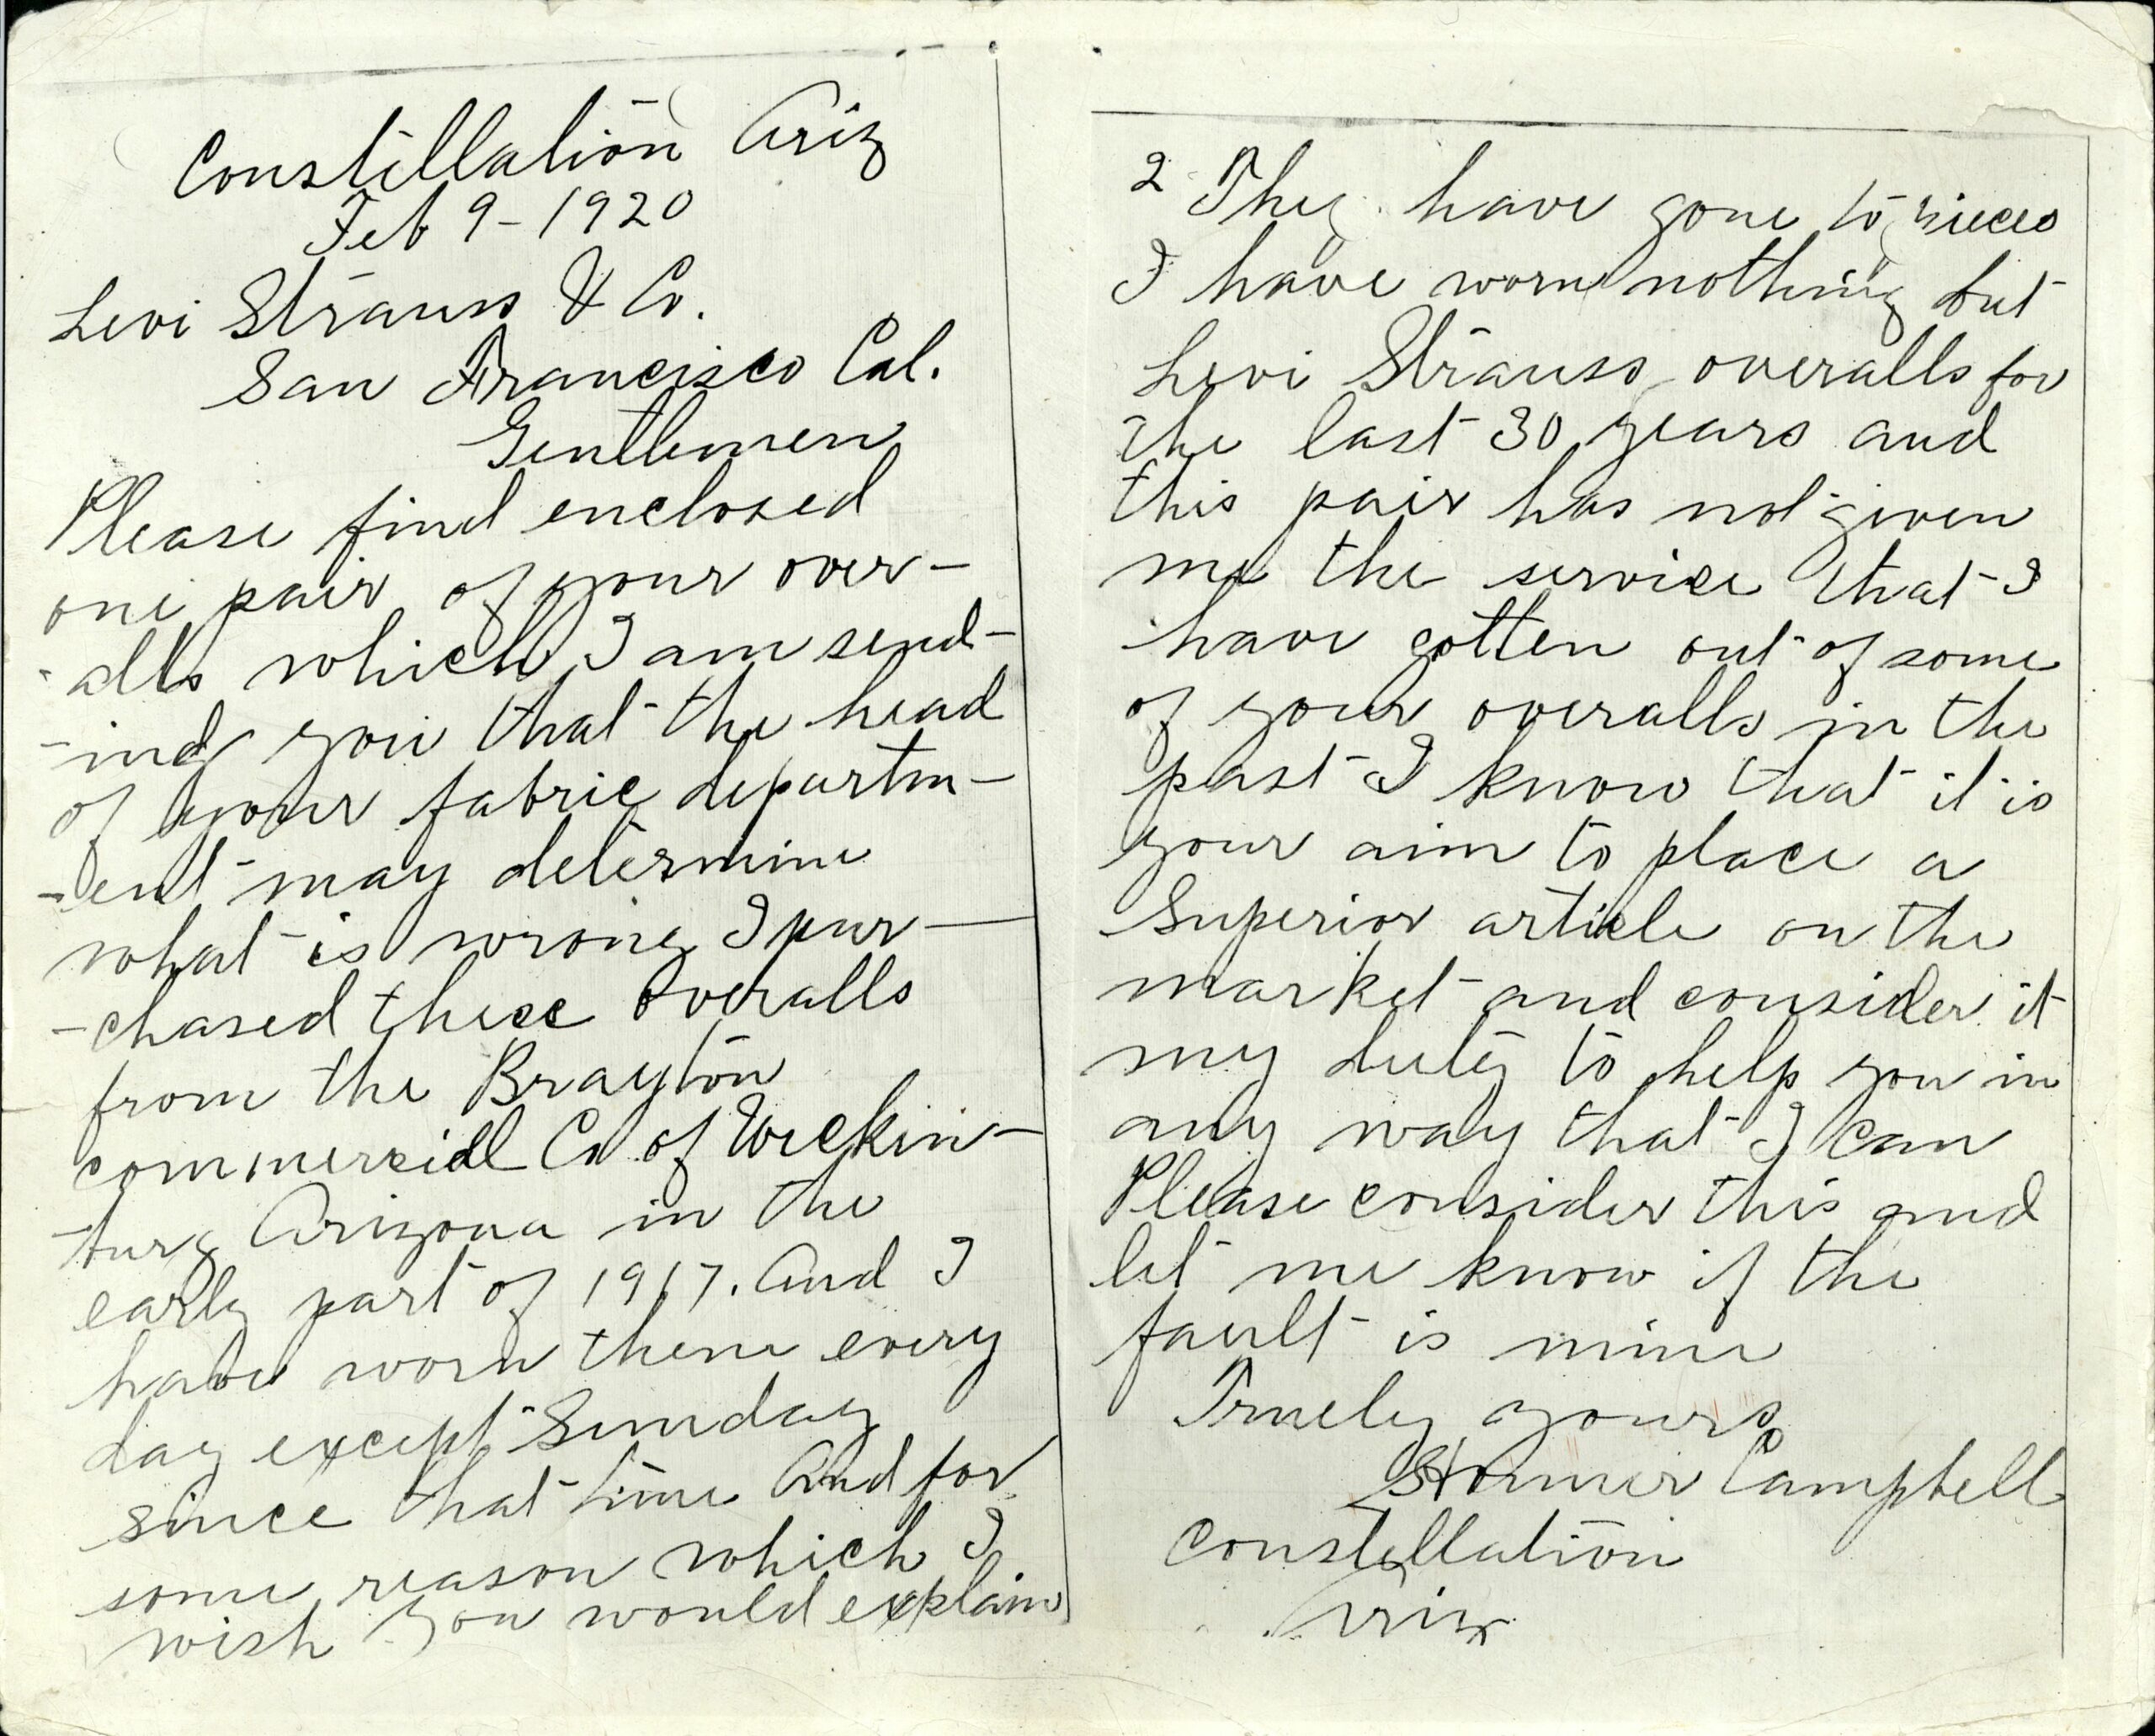 Constillation Ariz
Feb 9-1920
Levi Strauss & Co.
San Francisco Cal.
Gentlemen
Please find enclosed
one pair of your over-
-alls which I am send-
-ing you that the head
of your fabric departm-
-ent may determine
what is wrong I pur-
-chased these overalls
from the Brayton
commercial Co of Wickin-
-burg Arizona in the
early part of 1917. And I
have worn them every
day except Sunday
since that time And for
some reason which I
wish you would explain
2 They have gone to pieces
I have worn nothing but
Levi Strauss overalls for
the last 30 years and
this pair has not given
me the service that I
have gotten out of some
of your overalls in the
past I know that it is
your aim to place a
Superior article on the
market and consider it
my duty to help you in
any way that I can
Please consider this and
let me know if the
fault is mine
Truely yours
Homer Campbell
Constellation
Ariz